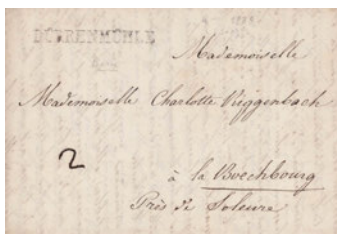 DÜRRENMÜHLE
Mademoiselle
Mademoiselle Charlotte Riggenbach
2
à la Bœchbourg
Près de Soleure